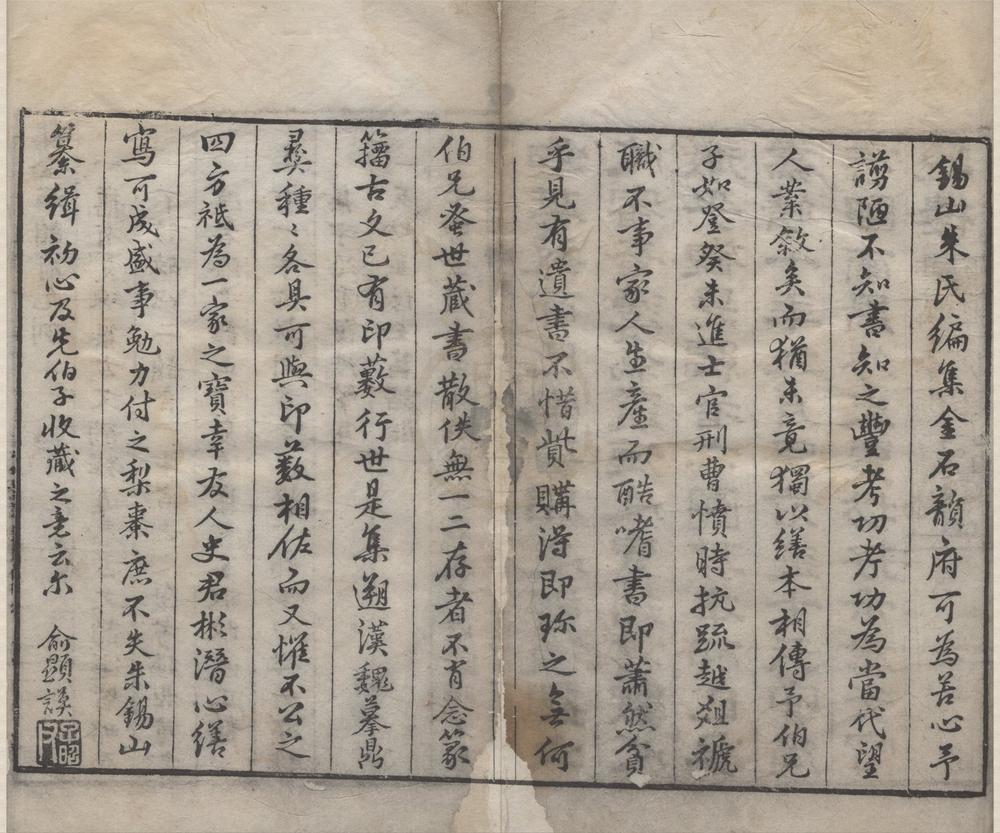 錫山朱氏編集金石韻府可為苦心予
謭陋不知書知之豐考功考功為當代望
人業敘矣而猶未竟獨以繕本相傳予伯兄
子如登癸未進士官刑曹憤時抗䟽越俎褫
職不事家人生產而酷嗜書即蕭然貧
乎見有遺書不惜貲購得即珍之無何
伯兄蚤世藏書散佚無一二存者不肖念篆
籀古文已有印藪行世是集遡漢魏摹鼎
彞種〻各具可與印藪相佐而又惟不公之
四方祗為一家之寶幸友人史君彬潛心繕
寫可成盛事勉力付之梨棗庶不失朱錫山
纂緝初心及先伯子收藏之意云尒 俞顯謨